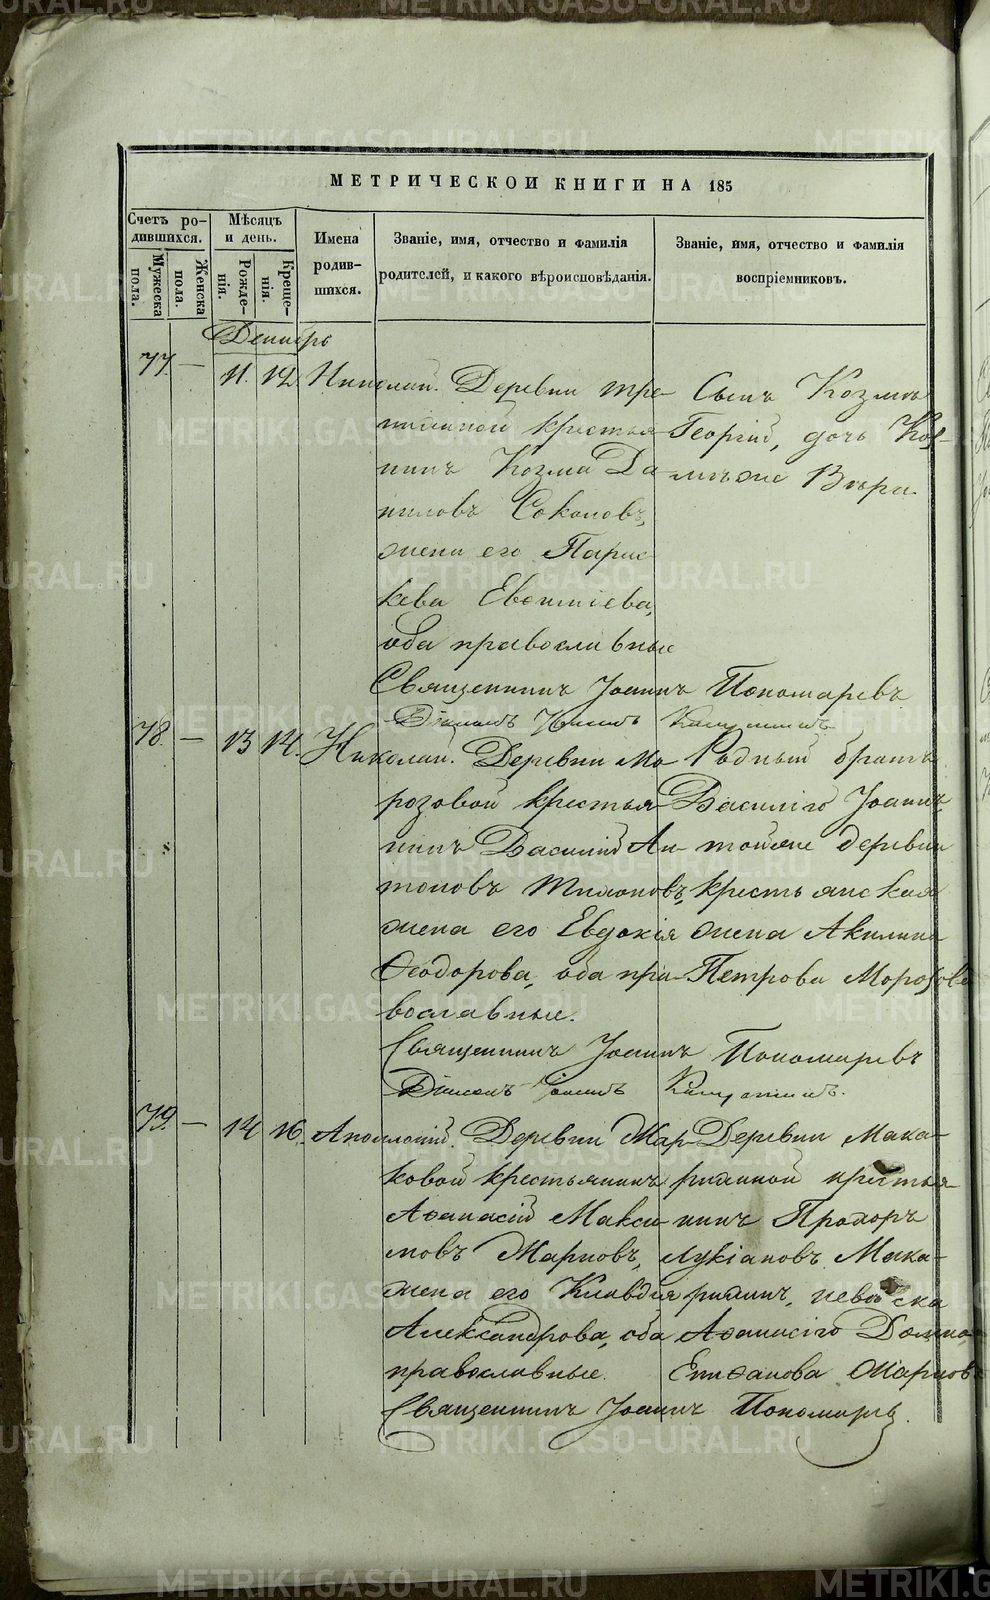 МЕТРИЧЕСКОЙ КНИГИ НА 185
Счетъ ро-
дившихся.
Мужеска
пола.
Женска
пола.
Мѣсяцъ
и день.
Рожде-
нія.
Креще-
нія.
Имена
родив-
шихся.
Званіе, имя, отчество и фамилія
родителей, и какого вѣроисповѣданія.
Званіе, имя, отчество и фамилія
воспріемниковъ.
Декабрь
77. — 11. 12. Николай. Деревни
крестья-
нинъ Козма Да-
ниловъ Соколовъ,
жена его Парас-
кева Евстигіева,
оба православные
Сынъ Козмы
Георгій, дочь Коз-
мы же Вѣра.
Священникъ Іоаннъ Пономаревъ
Діаконъ Іоаннъ
78. — 13 14. Николай. Деревни Мо-
розовой крестья-
нинъ Василій Ан-
тоновъ Тимоновъ,
жена его Евдокія
Ѳеодорова, оба пра-
вославные.
Родный братъ
Василія Іоаннъ,
той же деревни
крестьянская
жена Акилина
Петрова Морозова
Священникъ Іоаннъ Пономаревъ
Діаконъ Іоаннъ
79. — 14 16. Аполлоній. Деревни Мар-
ковой крестьянинъ
Аѳанасій Макси-
мовъ Марковъ,
жена его Клавдія
Александрова, оба
православные.
Деревни Мака-
рихиной крестья-
нинъ Прохоръ
Лукіановъ Мака-
рихинъ, невѣстка
Аѳанасія Домна
Епифанова Маркова
Священникъ Іоаннъ Пономаревъ
METRIKI.GASO-URAL.RU